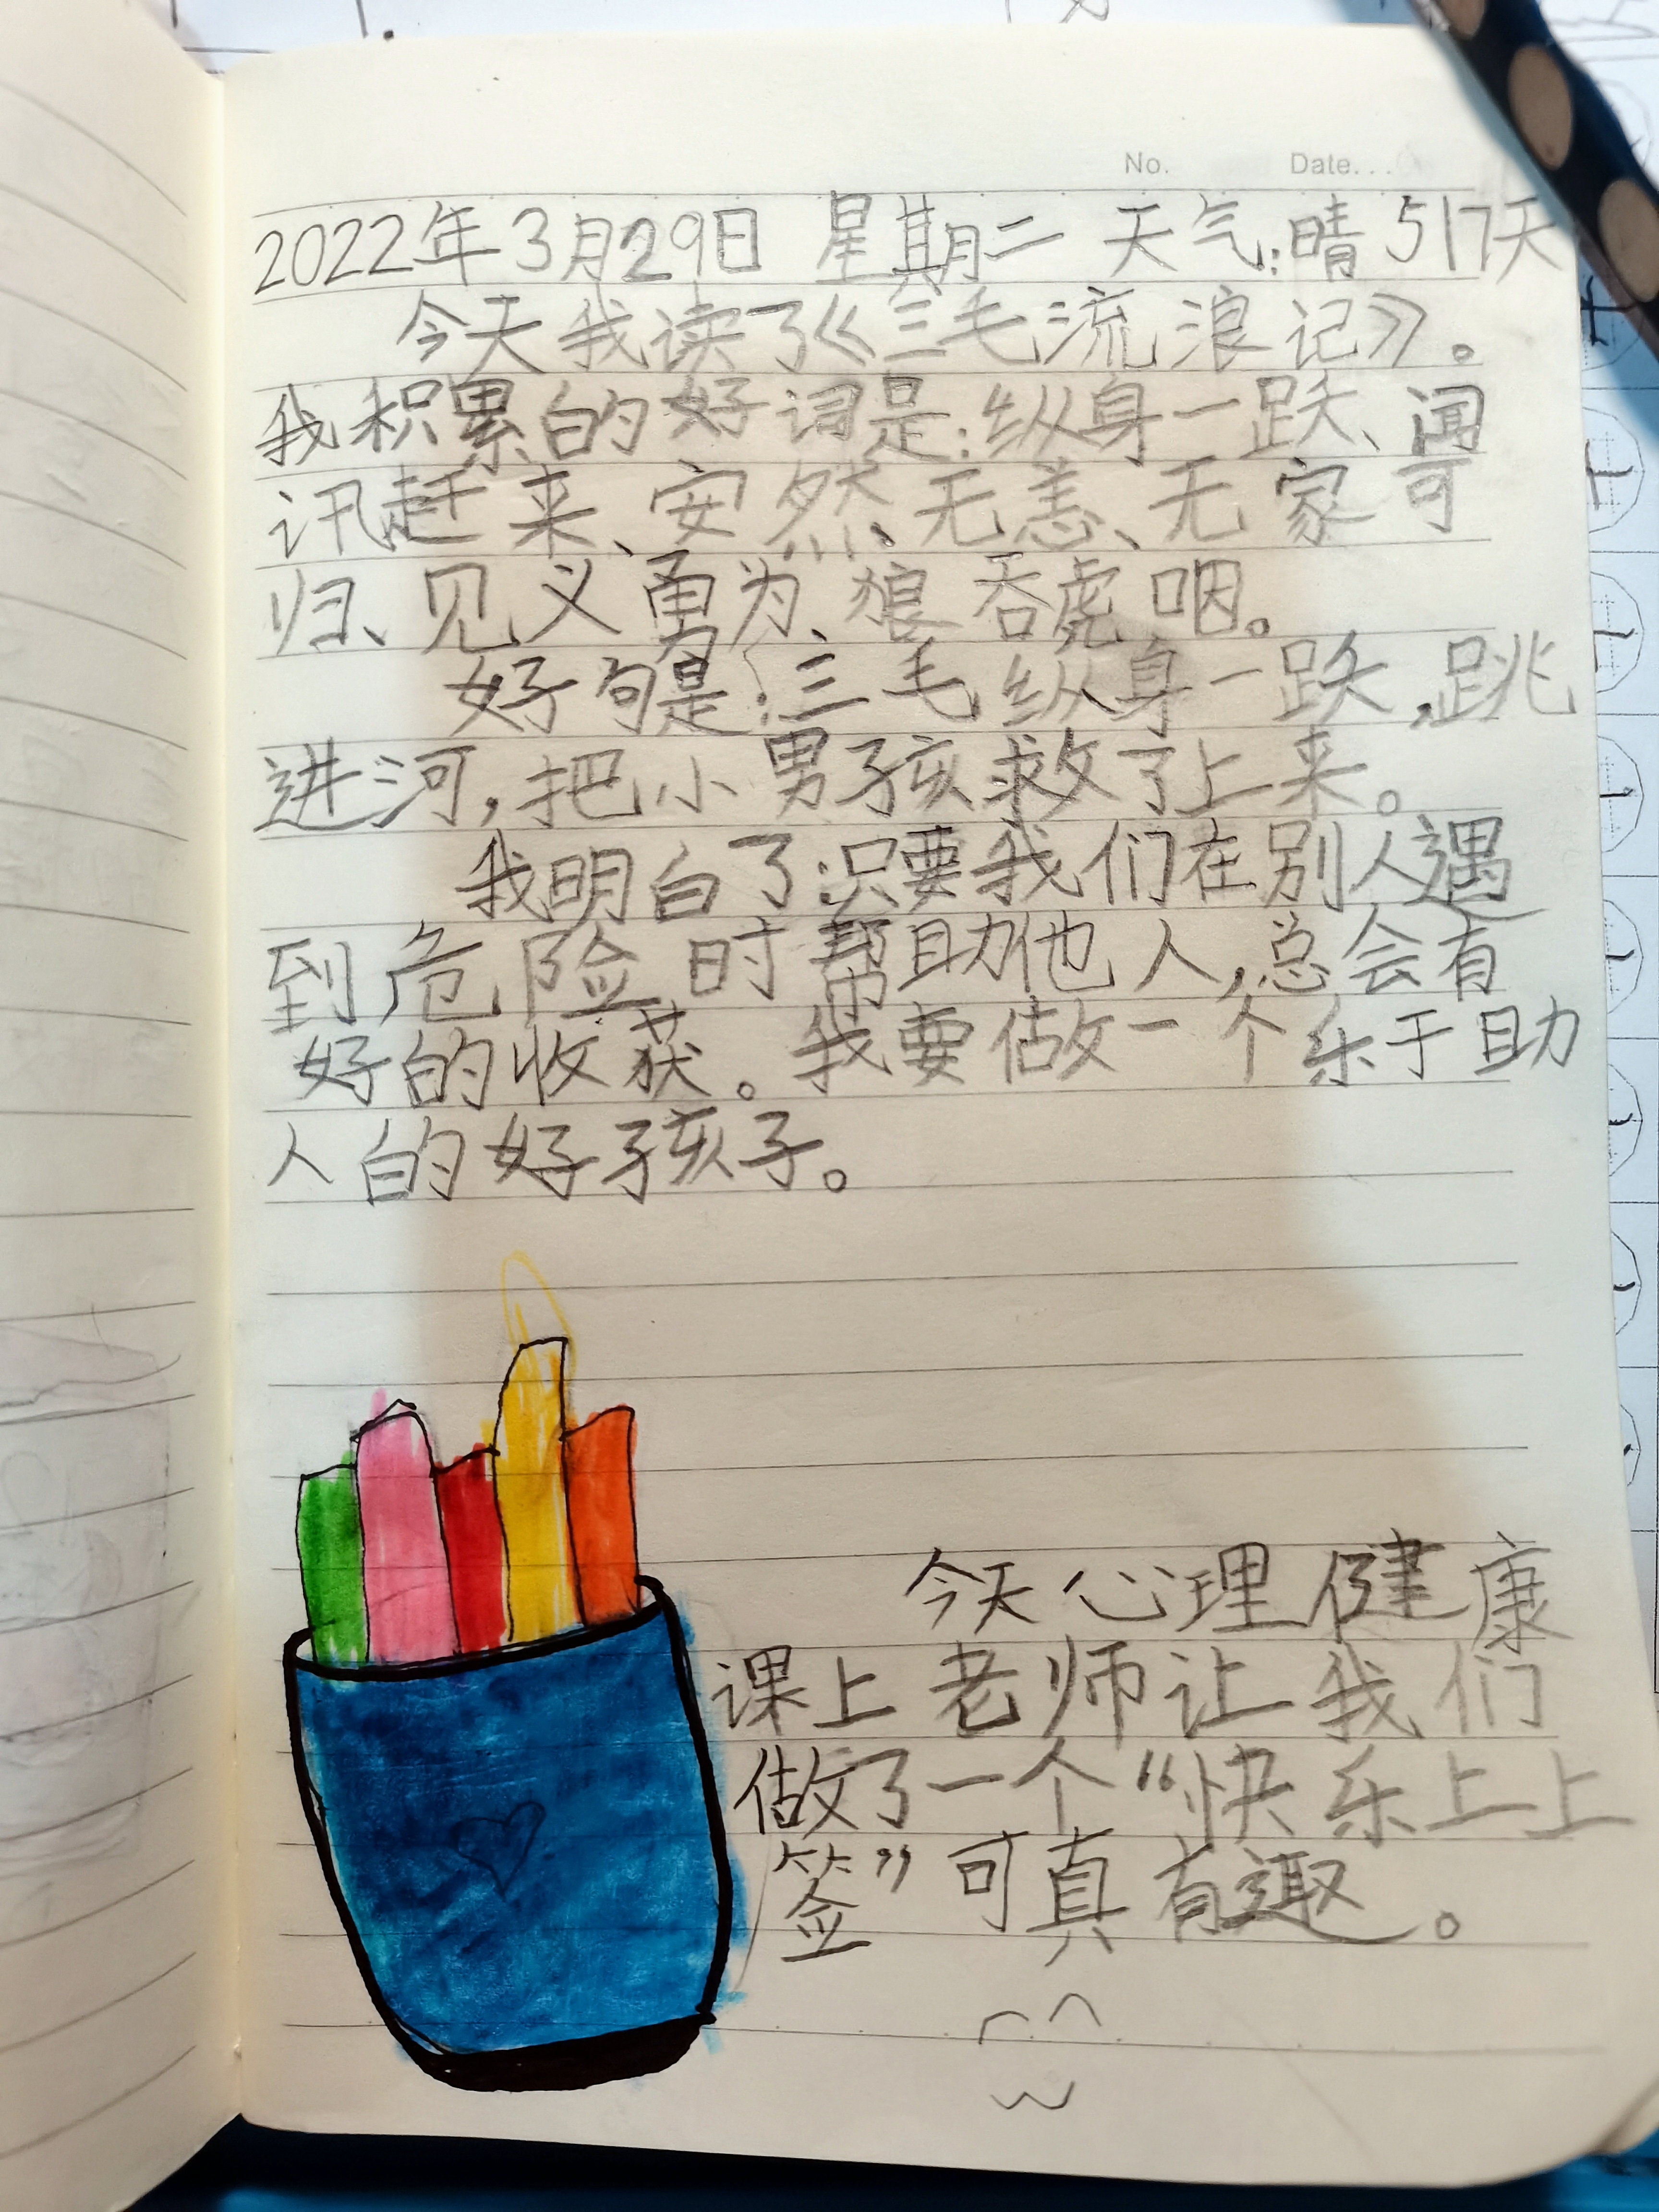 No. Date...
2022年3月29日 星期二 天气:晴 517天
今天我读了《三毛流浪记》。
我积累的好词是:纵身一跃、闻
讯赶来、安然无恙、无家可
归、见义勇为、狼吞虎咽。
好句是:三毛纵身一跃,跳
进河,把小男孩救了上来。
我明白了:只要我们在别人遇
到危险时帮助他人,总会有
好的收获。我要做一个乐于助
人的好孩子。
今天心理健康
课上老师让我们
做了一个“快乐上上
签”可真有趣。